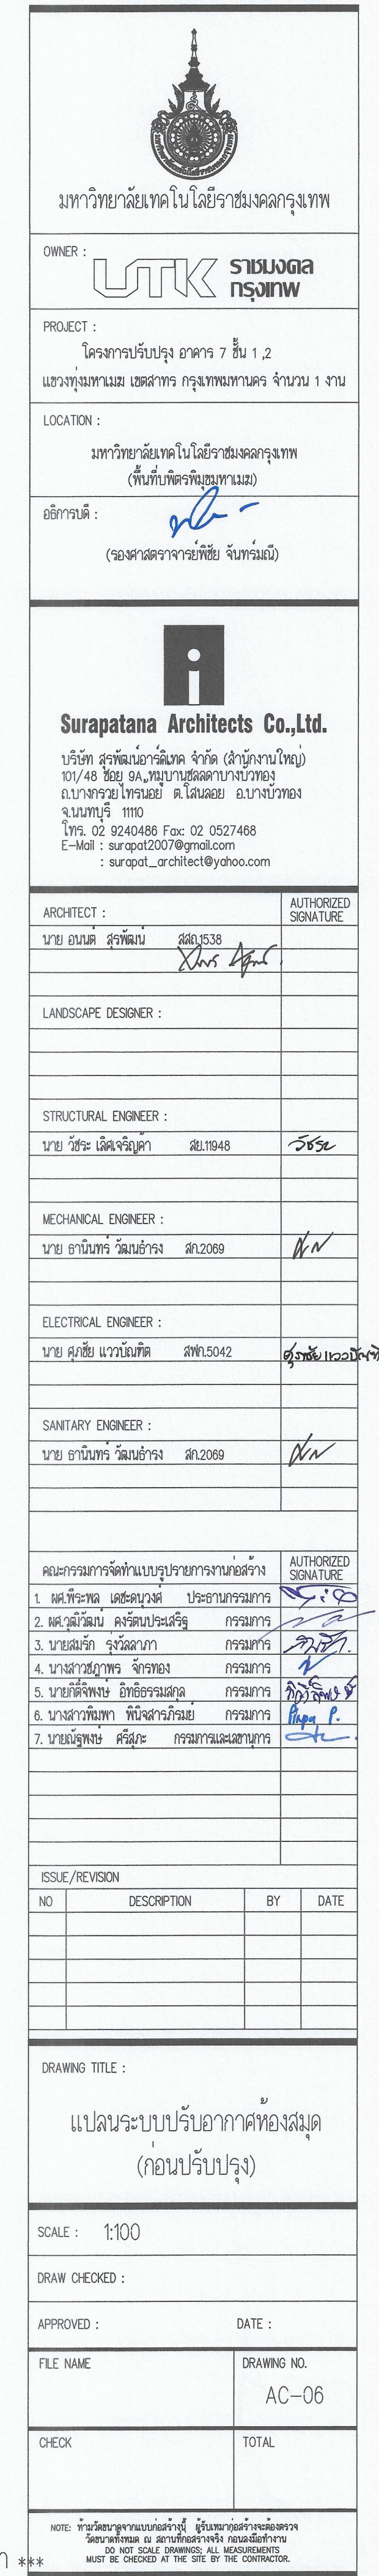 มหาวิทยาลัยเทคโนโลยีราชมงคลกรุงเทพ
OWNER :
UTK ราชมงคล
กรุงเทพ
PROJECT :
โครงการปรับปรุง อาคาร 7 ชั้น 1 ,2
แขวงทุ่งมหาเมฆ เขตสาทร กรุงเทพมหานคร จำนวน 1 งาน
LOCATION :
มหาวิทยาลัยเทคโนโลยีราชมงคลกรุงเทพ
(พื้นที่บพิตรพิมุขมหาเมฆ)
อธิการบดี :
(รองศาสตราจารย์พิชัย จันทร์มณี)
Surapatana Architects Co.,Ltd.
บริษัท สุรพัฒน์อาร์คิเทค จำกัด (สำนักงานใหญ่)
101/48 ซอย 9A หมู่บานชลลดาบางบัวทอง
ถ.บางกรวยไทรน้อย ต.โสนลอย อ.บางบัวทอง
จ.นนทบุรี 11110
โทร. 02 9240486 Fax: 02 0527468
E-Mail : surapat2007@gmail.com
: surapat_architect@yahoo.com
ARCHITECT :
AUTHORIZED
SIGNATURE
นาย อนนต์ สุรพัฒน์ สสถ.1538
LANDSCAPE DESIGNER :
STRUCTURAL ENGINEER :
นาย วัชระ เลิศเจริญค้า สย.11948 วัชระ
MECHANICAL ENGINEER :
นาย ธานินทร์ วัฒนธำรง สก.2069
ELECTRICAL ENGINEER :
นาย ศุภชัย แววบัณฑิต สฟก.5042 ศุภชัย แววบัณฑิต
SANITARY ENGINEER :
นาย ธานินทร์ วัฒนธำรง สก.2069
คณะกรรมการจัดทำแบบรูปรายการงานก่อสร้าง
AUTHORIZED
SIGNATURE
1. ผศ.พีระพล เดชะดนุวงศ์ ประธานกรรมการ
2. ผศ.วุฒิวัฒน์ คงรัตนประเสริฐ กรรมการ
3. นายสมรัก รุ่งวัลลาภา กรรมการ
4. นางสาวชฎาพร จักรทอง กรรมการ
5. นายกิตติพงษ์ อิทธิธรรมสกุล กรรมการ
6. นางสาวพิมพา พินิจสารภิรมย์ กรรมการ Pimpa P.
7. นายณัฐพงษ์ ศรีสุภะ กรรมการและเลขานุการ
ISSUE/REVISION
NO DESCRIPTION BY DATE
DRAWING TITLE :
แปลนระบบปรับอากาศห้องสมุด
(ก่อนปรับปรุง)
SCALE : 1:100
DRAW CHECKED :
APPROVED : DATE :
FILE NAME DRAWING NO.
AC-06
CHECK TOTAL
NOTE: ห้ามวัดขนาดจากแบบก่อสร้างนี้ ผู้รับเหมาก่อสร้างจะต้องตรวจ
วัดขนาดทั้งหมด ณ สถานที่ก่อสร้างจริง ก่อนลงมือทำงาน
DO NOT SCALE DRAWINGS; ALL MEASUREMENTS
MUST BE CHECKED AT THE SITE BY THE CONTRACTOR.
***